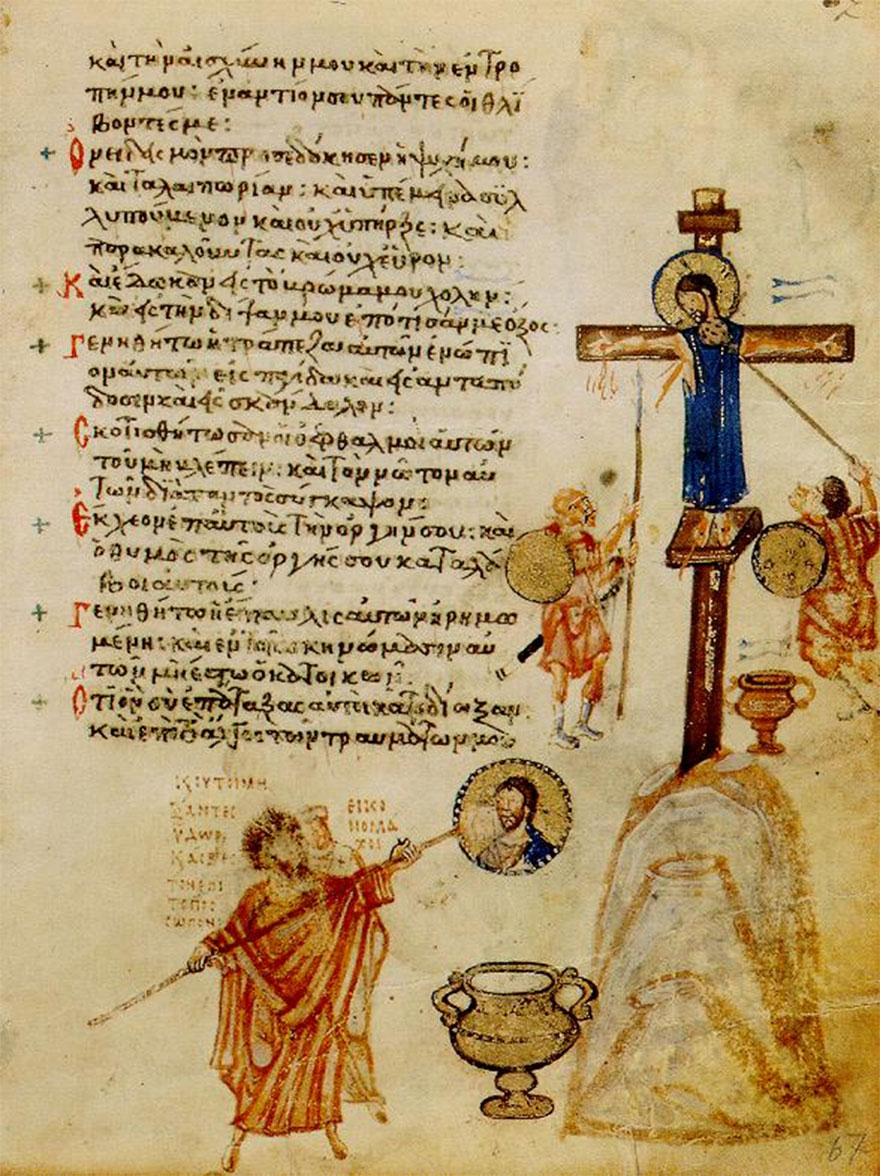 καὶ τὴν αἰσχύνην μου καὶ τὴν ἐντρο
πήν μου: ἐναντίον σου πάντες οἱ θλί
βοντές με:
Ὀνειδισμὸν προσεδόκησεν ἡ ψυχή μου:
καὶ ταλαιπωρίαν: καὶ ὑπέμεινα συλ
λυπούμενον καὶ οὐχ ὑπῆρξε: καὶ
παρακαλοῦντας καὶ οὐχ εὗρον:
Καὶ ἔδωκαν εἰς τὸ βρῶμά μου χολήν:
καὶ εἰς τὴν δίψαν μου ἐπότισάν με ὄξος:
Γενηθήτω ἡ τράπεζα αὐτῶν ἐνώπι
ον αὐτῶν εἰς παγίδα καὶ εἰς ἀνταπό
δοσιν καὶ εἰς σκάνδαλον:
Σκοτισθήτωσαν οἱ ὀφθαλμοὶ αὐτῶν
τοῦ μὴ βλέπειν: καὶ τὸν νῶτον αὐ
τῶν διὰ παντὸς σύγκαψον:
Ἔκχεον ἐπ αὐτοὺς τὴν ὀργήν σου: καὶ
ὁ θυμὸς τῆς ὀργῆς σου καταλά
βοι αὐτούς:
Γενηθήτω ἡ ἔπαυλις αὐτῶν ἠρημω
μένη: καὶ ἐν τοῖς σκηνώμασιν αὐ
τῶν μὴ ἔστω ὁ κατοικῶν:
Ὅτι ὃν σὺ ἐπάταξας αὐτοὶ κατεδίωξαν
καὶ ἐπὶ τὸ ἄλγος τῶν τραυμάτων μου
ΕΙΚΟ
ΝΟΜΑ
ΧΟΙ
67